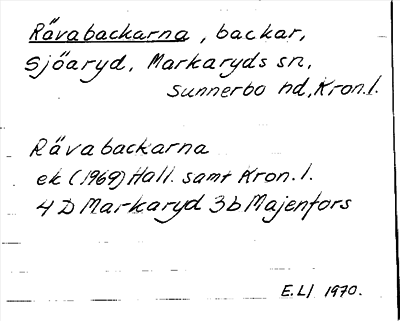 Rävabackarna, backar,
Sjöaryd, Markaryds sn,
Sunnerbo hd, Kron.l.
Rävabackarna
ek (1969) Hall. samt Kron.l.
4 D Markaryd 3b Majenfors
E.Lj 1970.